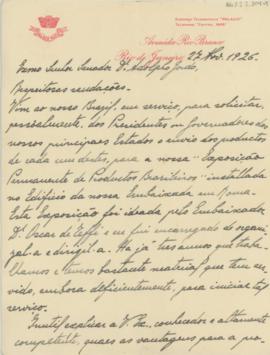 Avenida Rio Branco
Rio de Janeiro, 27 Nov. 1926.
Exmo Senhor Senador Dr. Adolpho Gordo,
Respeitosas saudações.
Vim ao nosso Brazil, em serviço, para solicitar,
pessoalmente, dos Presidentes ou Governadores dos
nossos principaes Estados o envio dos productos
de cada um destes, para a nossa "Exposição
Permanente de Productos Brazileiros" installada
no Edificio da nossa Embaixada em Roma.
Esta Exposição foi ideada pelo Embaixador
Dr. Oscar de Teffé e eu fui encarregado de organi-
zal-a e dirigil-a. Ha já tres annos que traba-
lhamos e temos bastante material que tem ser-
vido, embora deficientemente, para iniciar tal
serviço.
Inutil explicar a V. Ex., conhecedor e altamente
competente, quaes as vantagens para a pro-